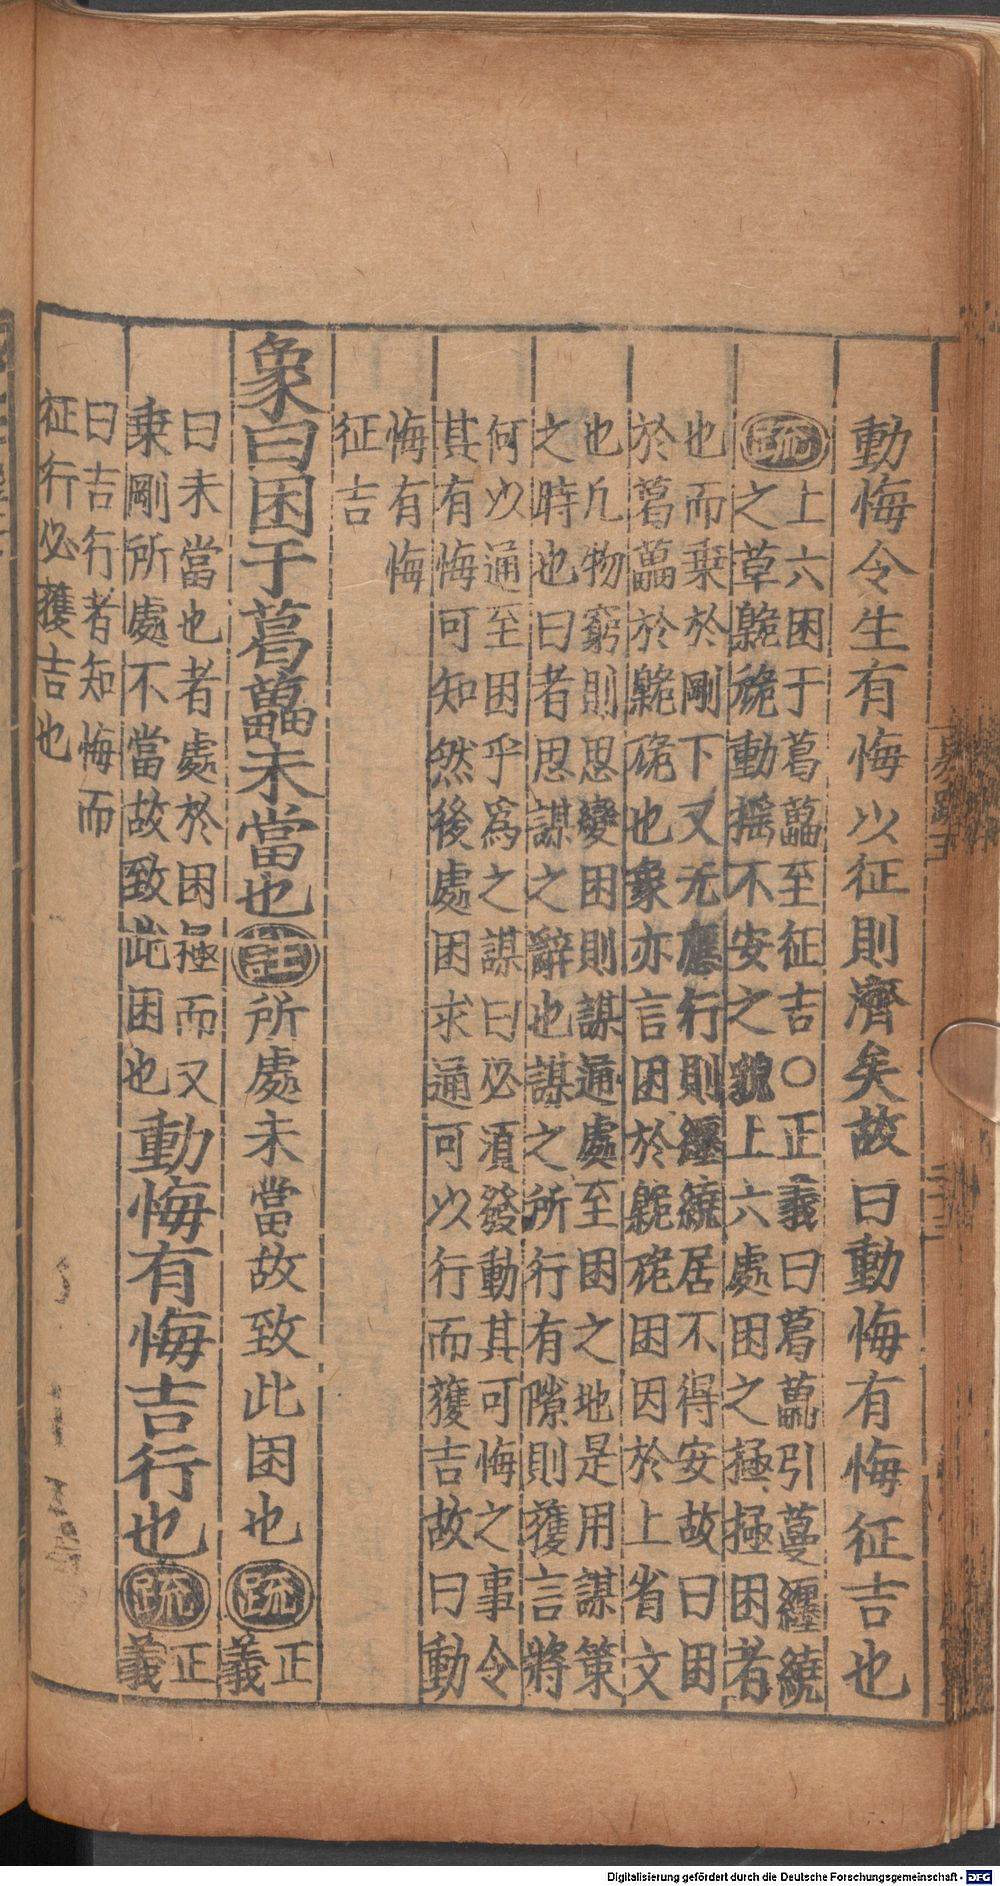 動悔令生有悔以征則濟矣故曰動悔有悔征吉也
疏上六困于葛藟至征吉○正義曰葛藟引蔓纒繞
之草臲卼動揺不安之貌上六處困之極極困者
也而乗於剛下又无應行則纒繞居不得安故曰困
於葛藟於臲卼也象亦言困於臲卼困因於上省文
也凢物窮則思變困則謀通處至困之地是用謀策
之時也曰者思謀之辭也謀之所行有隙則獲言將
何以通至困乎爲之謀曰必湏發動其可悔之事令
其有悔可知然後處困求通可以行而獲吉故曰動
悔有悔
征吉
象曰困于葛藟未當也註所處未當故致此困也疏正
義
曰未當也者處於困極而又
乗剛所處不當故致此困也動悔有悔吉行也疏正
義
曰吉行者知悔而
征行必獲吉也
Digitalisierung gefördert durch die Deutsche Forschungsgemeinschaft - DFG